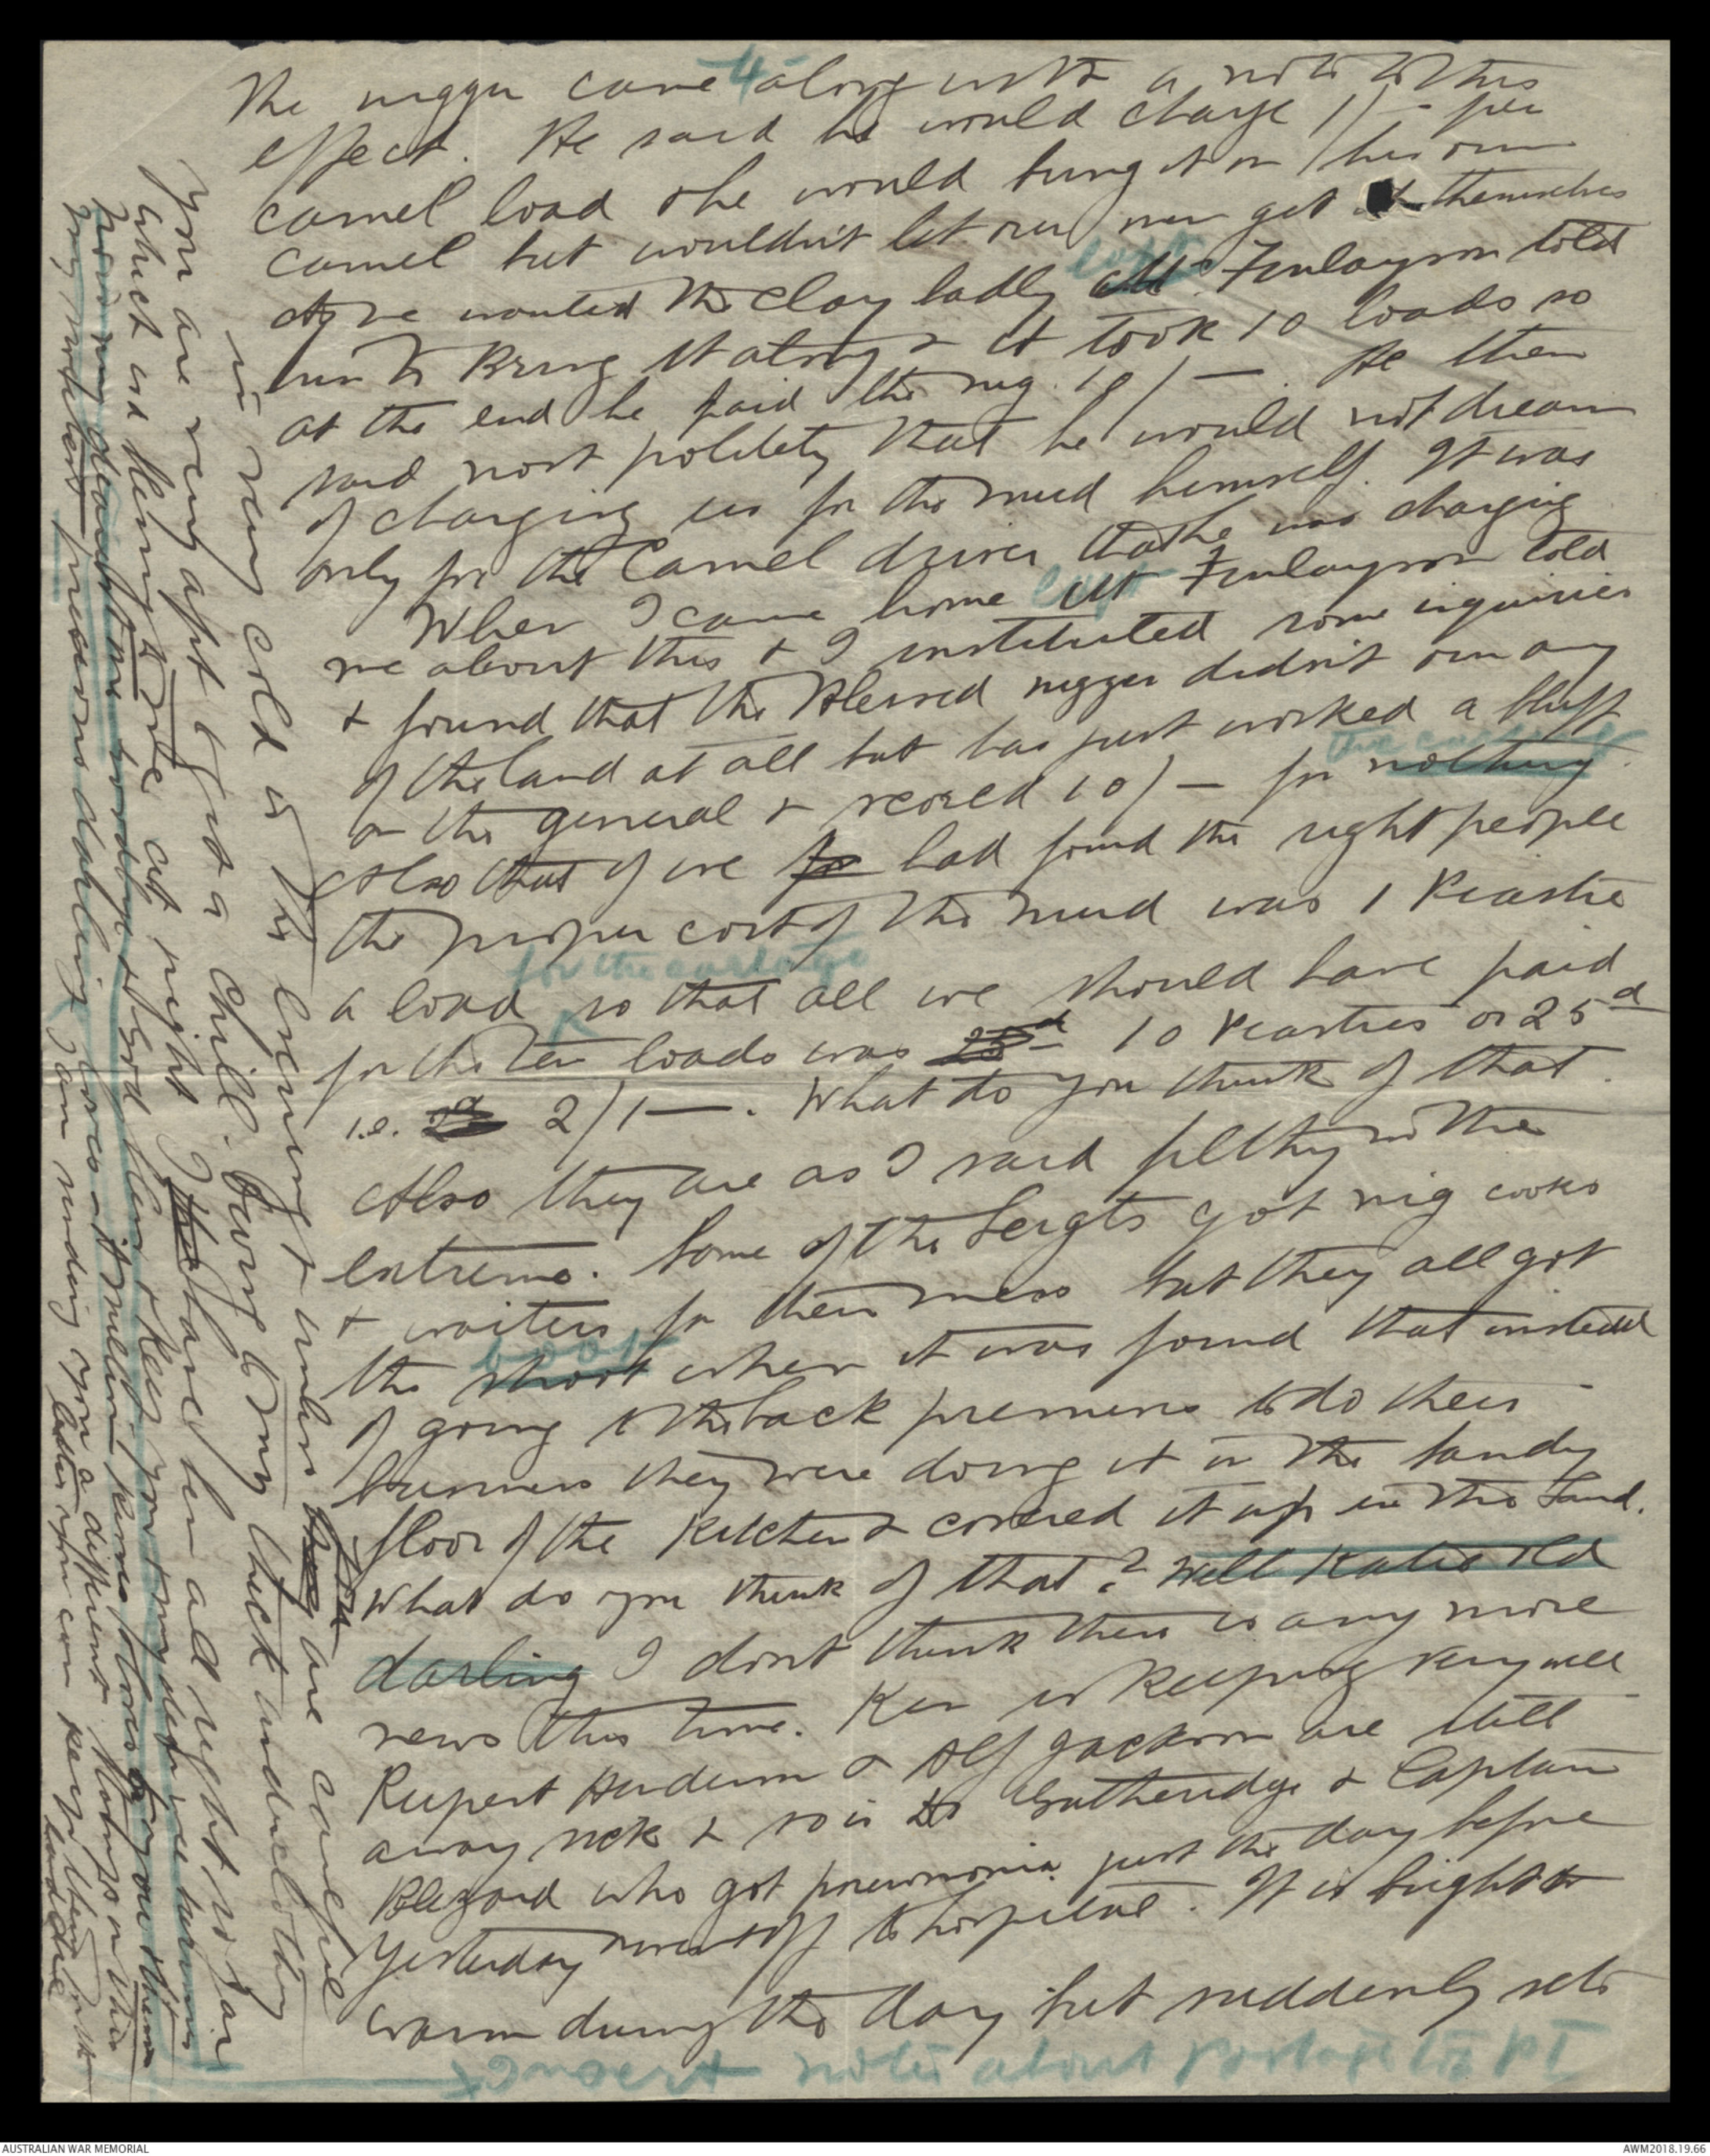 -4-
The nigger came along with a note to this
effect. He said he would charge 1/- per
camel load & he would bring it on his own
camel but wouldn't let our men get it themselves
As we wanted the clay badly Capt Finlayson told
him to Bring it along & it took 10 loads so
at the end he paid the nig. 10/-. He then
said most politely that he would not dream
of charging us for the mud himself. It was
only for the Camel driver that he was charging
When I came home Capt Finlayson told
me about this & I instituted some inquiries
& found that the Blessed nigger didn't own any
of the land at all but has just worked a bluff
on the general & scored 10/- for nothing the cartage.
Also that if we fo had found the right people
the proper cost of the mud was 1 Piastre
a load so that all we should have paid
for the cartage
for the ten loads was 25d 10 Piastres or 25d
i.e. 2d 2/1-. What do you think of that.
Also they are as I said filthy in the
extreme. Some of the Sergts got nig cooks
& waiters for their mess but they all got
the shoot boot when it was found that instead
of going to the back premises to do their
business they were doing it in the sandy
floor of the kitchen & covered it up in the sand.
What do you think of that? Well Katie old
darling I don't think there is any more
news this time. Ken is keeping very well
Rupert Henderson & Alf Jackson are still
away sick & so is Gutheridge & Captain
Blezard who got pneumonia just the day before
yesterday & went off to hospital. It is bright &
warm during the day but suddenly sets
Insert note about postage to PT
in very cold in the evening & unless they you are careful
you are very apt to get a chill. Owing to my thick underclothing
which is keeping to me all right I have been all right so far